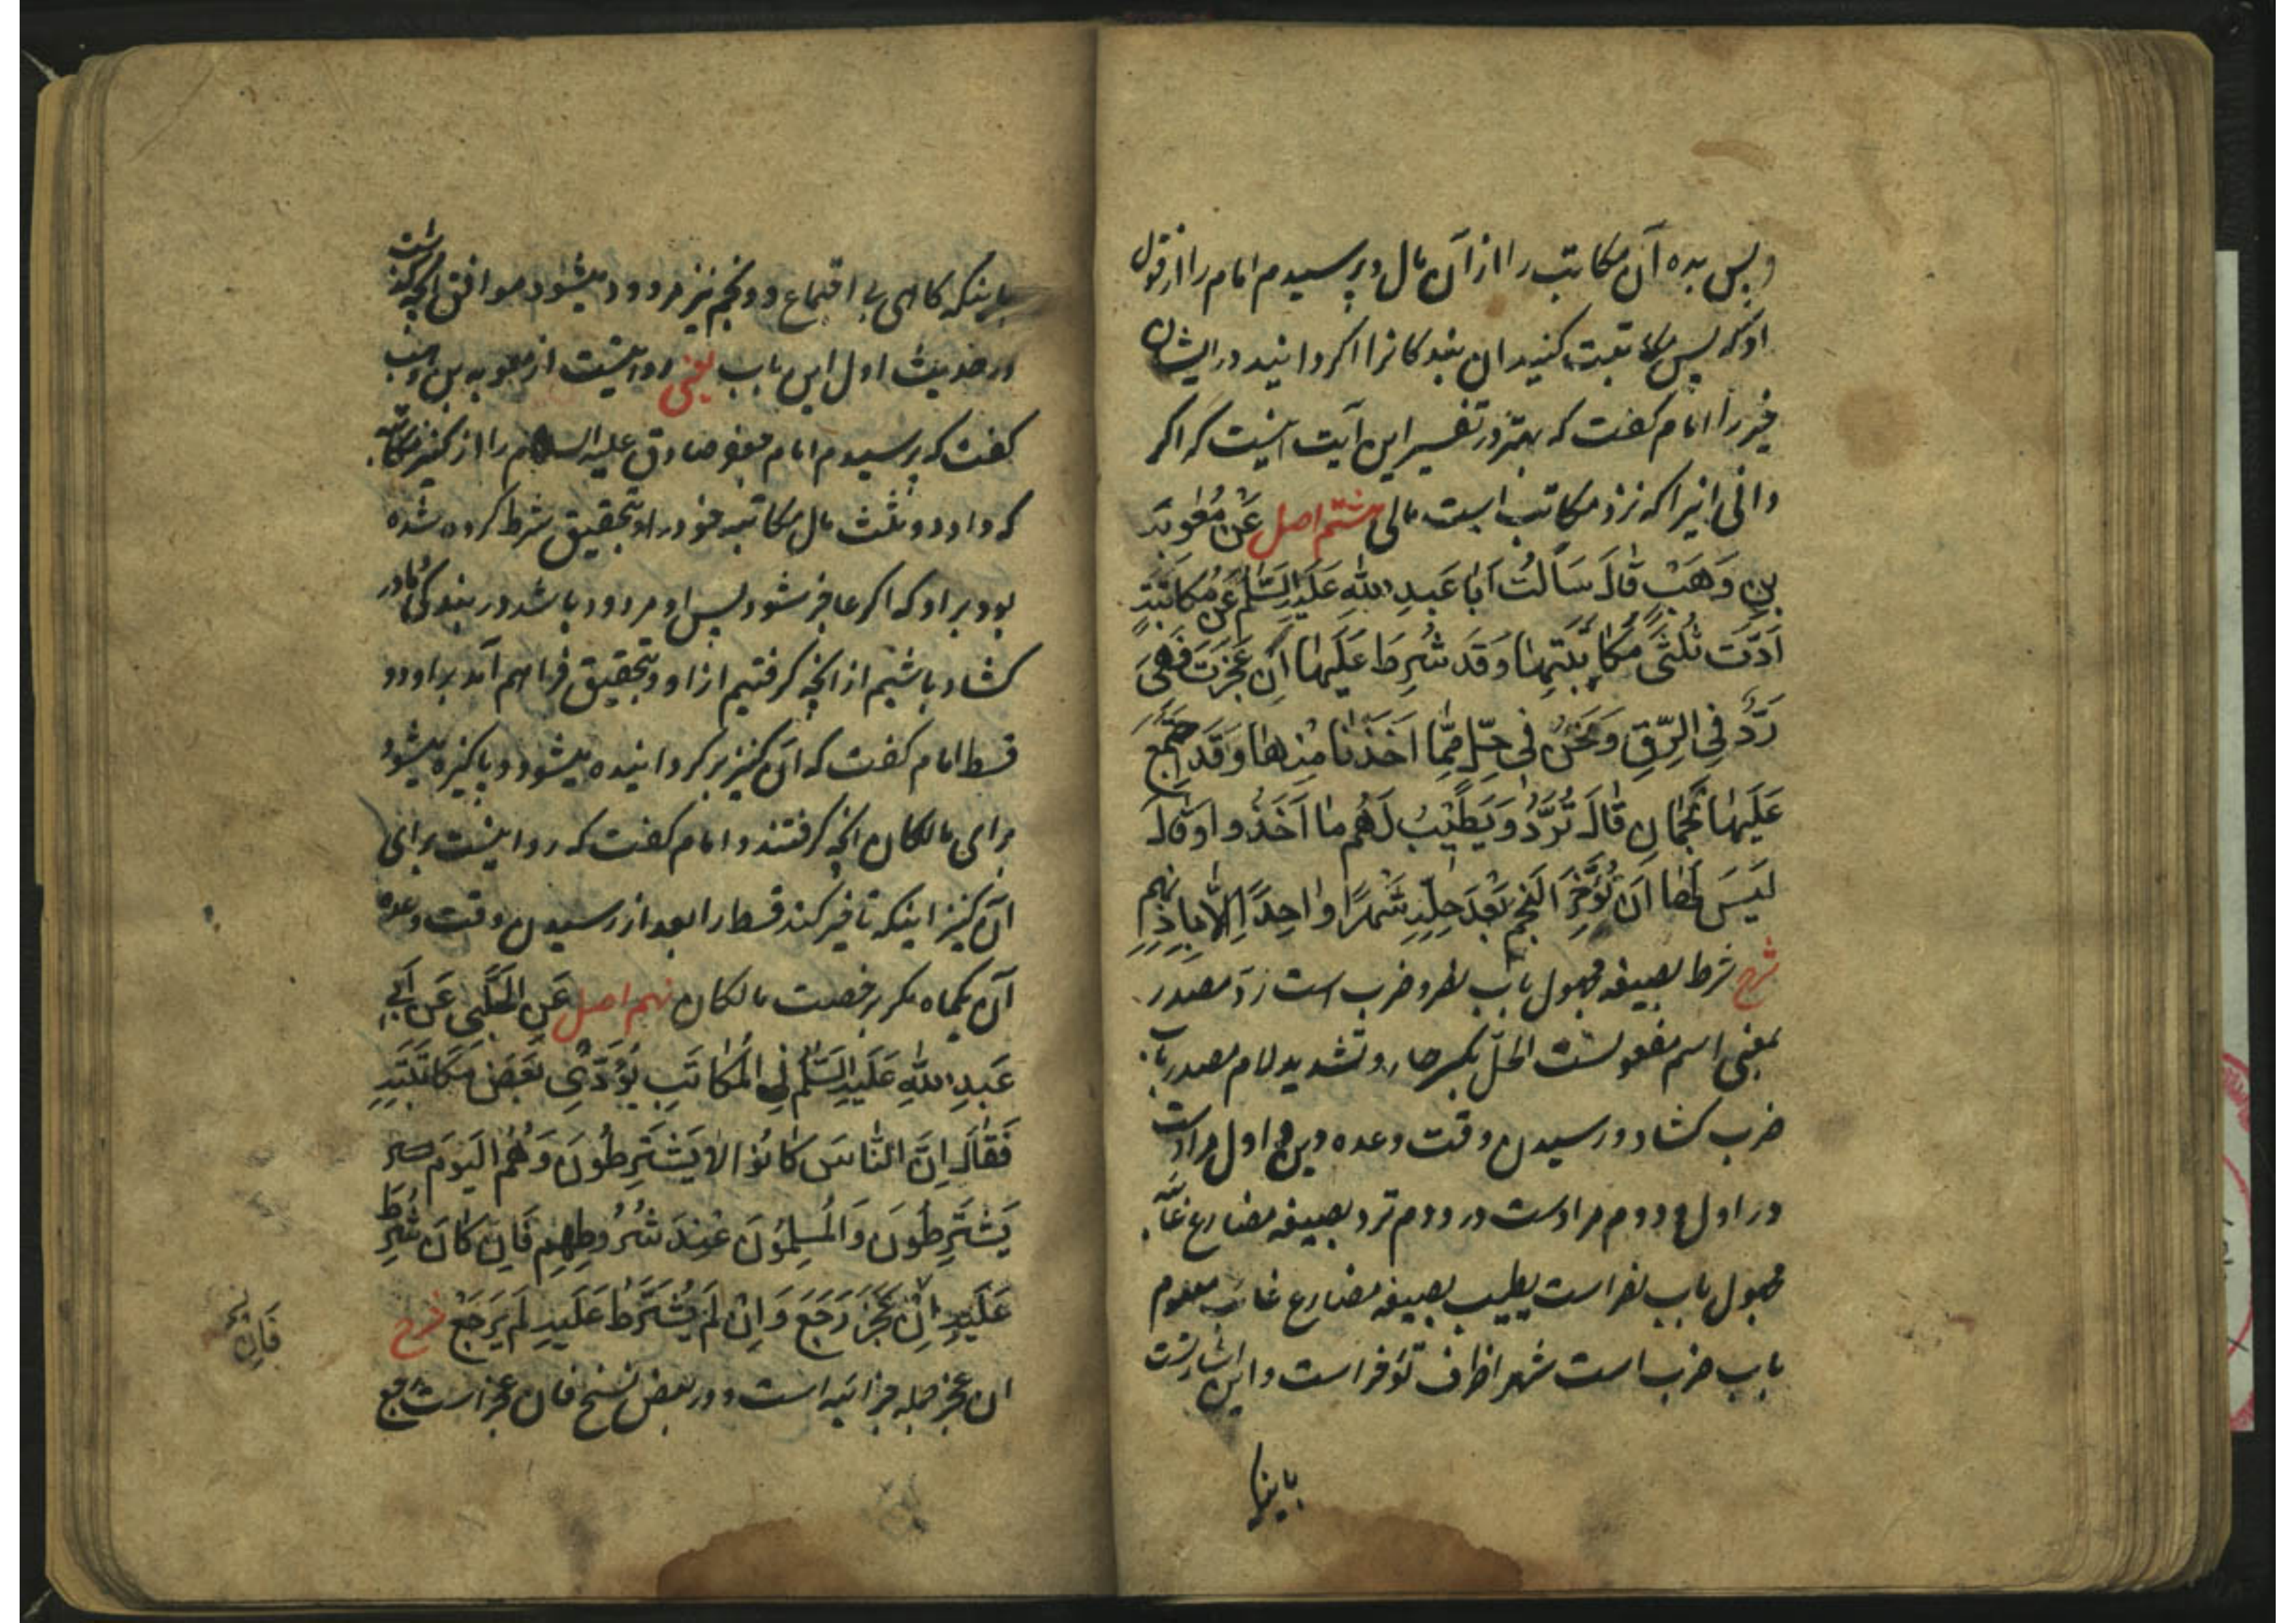 و پس بده آن مکاتب را از آن مال و پرسیدم امام را از قول
او که پس مکاتبت کنید آن بندکانرا اکر دانید در ایشان
خیر را امام کفت که بهتر در تفسیر این آیت اینست که اکر
دانی اینرا که نزد مکاتب است مالی هشتم اصل عَنْ مُعٰوِیَةَ
بنِ وَهَبْ قالَ سَاَلتُ اَبا عَبدِ اللهِ عَلَیهِ السَّلٰم عَن مُکاتَبَةٍ
اَدَّت ثُلُثَی مُکاتَبَتِها وَ قَد شُرِطَ عَلَیها اِن عَجَزَت فَهِیَ
رَدٌّ فِی الرِّقِ وَ نَحنُ فی حِلٍّ مِمّا اَخَذنا مِنها وَ قَد اجتَمَعَ
عَلَیها نَجمانِ قالَ تُرَدُّ وَ یَطیبُ لَهُم ما اَخَذُوا و قالَ
لَیسَ لَها اَن تُؤَخِّرَ النَجمَ بَعدَ حِلِّهِ شَهرًا واحِدًا اِلّا بِاِذنِهِم
شرح شرط بصیغه مجهول باب نصر و ضرب است ردّ مصدر
بمعنی اسم مفعولست الحلّ بکسر حاء و تشدید لام مصدر باب
ضرب کشاد و رسیدن وقت وعده و این اول مراد است
در اول و دوم مرادست در دوم ترد بصیغه مضارع غائبه
مجهول باب نصر است یطیب بصیغه مضارع غائب معلوم
باب ضرب است شهرا ظرف تؤخر است و این اشارتست
باینکه
باینکه کاهی بی اجتماع دو نجم نیز مردود میشود موافق آنچه کذشت
در حدیث اول این باب یعنی روایتست از معویه بن وهب
کفت که پرسیدم امام جعفر صادق علیه السلام را از کنیز مکاتبه
که داد دو ثلث مال مکاتبه خود را و بتحقیق شرط کرده شده
بود بر او که اکر عاجز شود پس او مردود باشد در بندکی و ما در
کشاد باشیم از آنچه کرفتیم از او و بتحقیق فراهم آمد بر او دو
قسط امام کفت که آن کنیز بر کردانیده میشود و پاکیزه میشود
برای مالکان آنچه کرفتند و امام کفت که روا نیست برای
آن کنیز اینکه تاخیر کند قسط را بعد از رسیدن وقت وعده
آن یکماه مکر برخصت مالکان نهم اصل عَنِ الحَلَبی عَن اَبی
عَبدِ اللهِ عَلَیهِ السَّلٰم فِی المُکاتَبِ یُؤَدّی بَعضَ مُکاتَبَتِهِ
فَقالَ اِنَّ النّاسَ کانُوا لا یَشتَرِطُونَ وَ هُمُ الیَومَ
یَشتَرِطُونَ وَ المُسلِمُونَ عِندَ شُرُوطِهِم فَاِن کانَ شُرِطَ
عَلَیهِ اِن عَجَزَ رَجَعَ وَ اِن لَم یُشتَرَط عَلَیهِ لَم یَرجَع شرح
ان عجز جمله جزائیه است و در بعض نسخ فان عجز است رجع
فَاِن